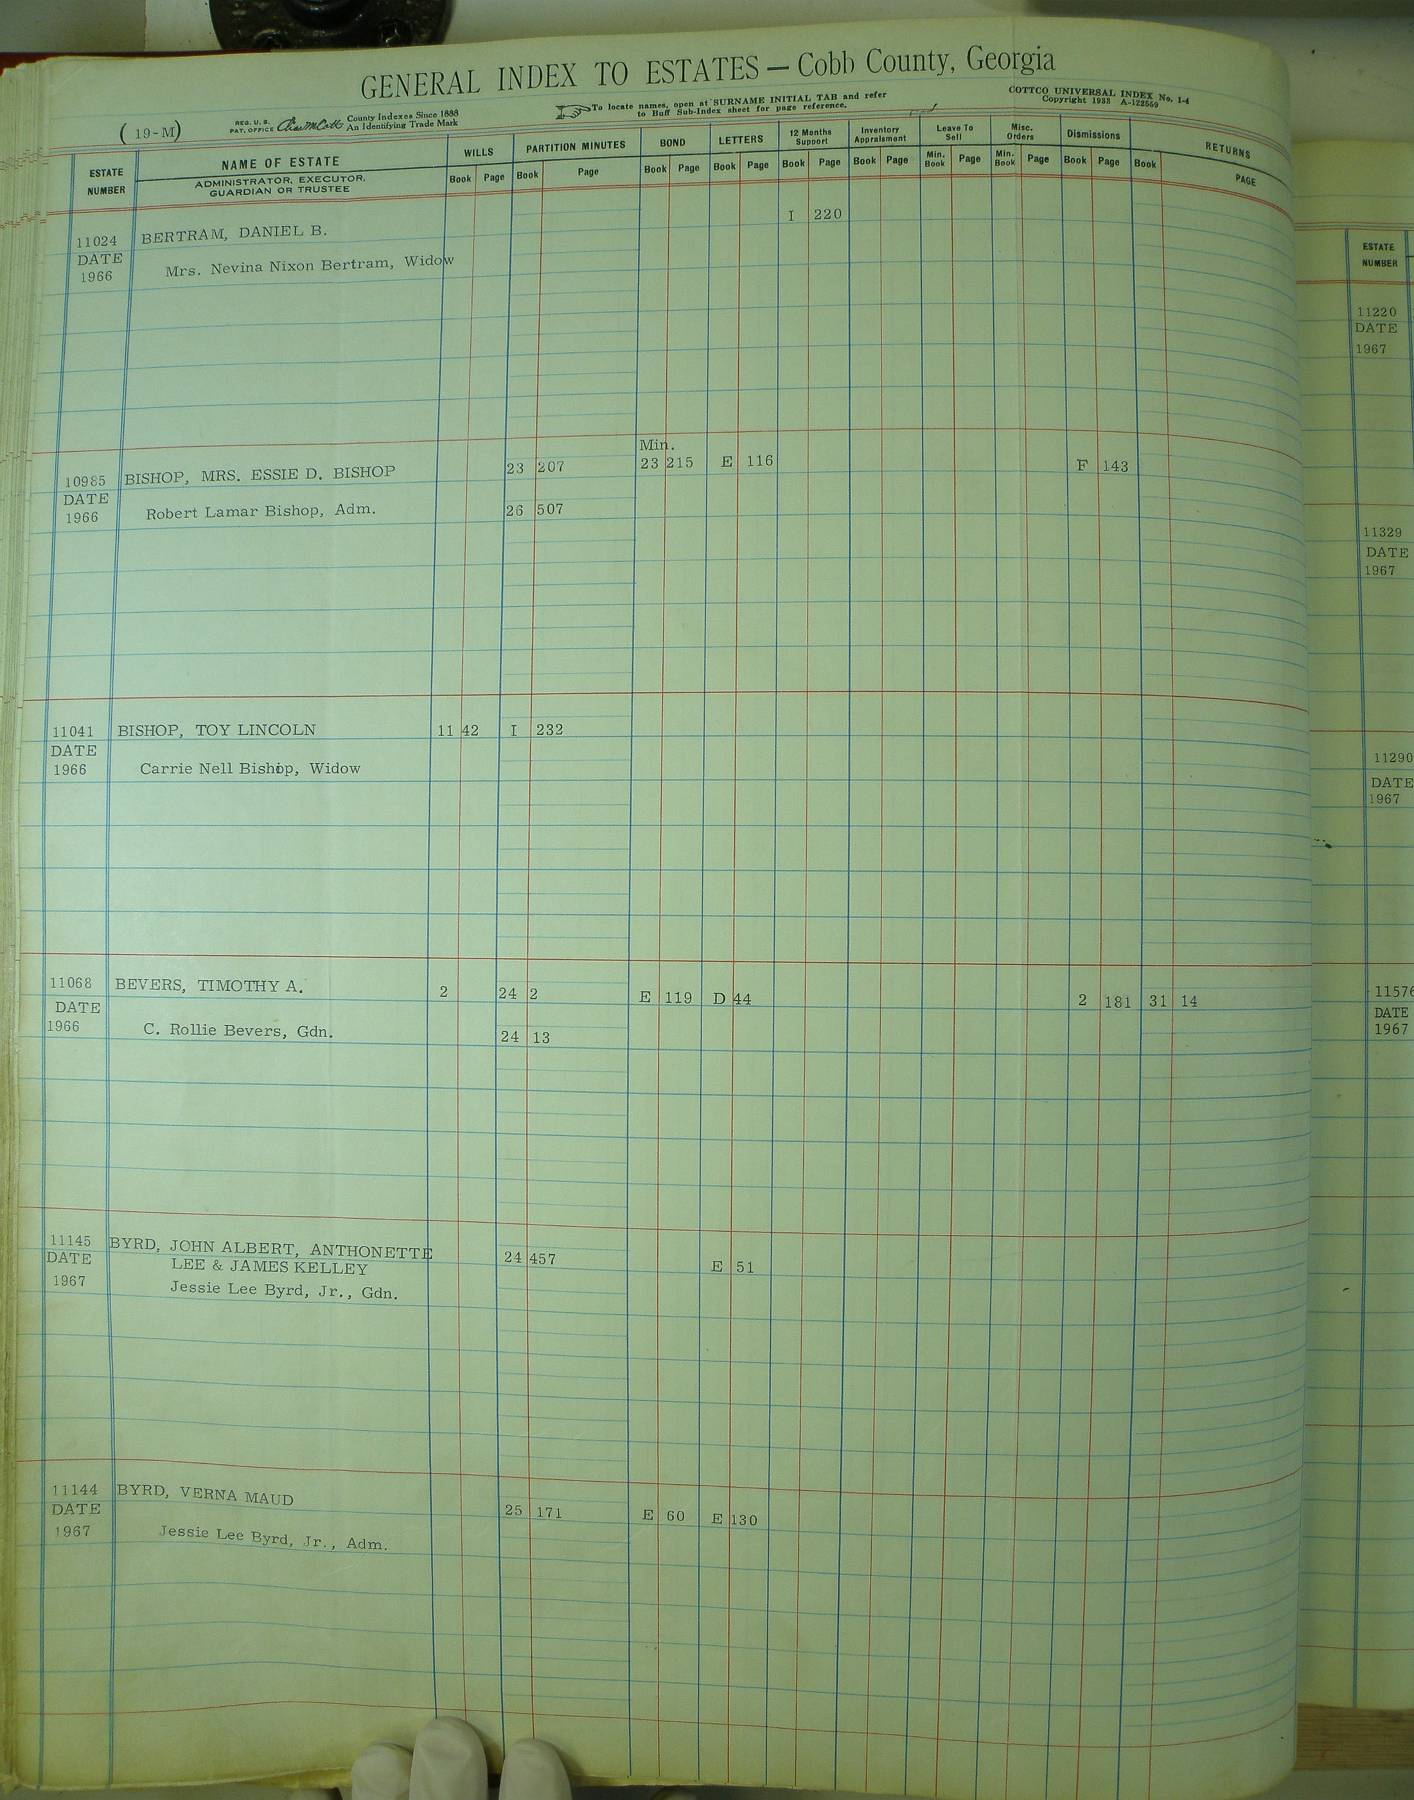 GENERAL INDEX TO ESTATES — Cobb County, Georgia
( 19-M)
REG. U. S. PAT. OFFICE County Indexes Since 1888 An Identifying Trade Mark
To locate names, open at SURNAME INITIAL TAB and refer to Buff Sub-Index sheet for page reference.
COTTCO UNIVERSAL INDEX No. 1-4
Copyright 1933 A-122559
ESTATE NUMBER NAME OF ESTATE WILLS PARTITION MINUTES BOND LETTERS 12 Months Support Inventory Appraisment Leave To Sell Misc. Orders Dismissions RETURNS
ADMINISTRATOR, EXECUTOR, GUARDIAN OR TRUSTEE Book Page Book Page Book Page Book Page Book Page Book Page Min. Book Page Min. Book Page Book Page Book PAGE
I 220
11024 BERTRAM, DANIEL B.
DATE
1966 Mrs. Nevina Nixon Bertram, Widow
Min.
10985 BISHOP, MRS. ESSIE D. BISHOP 23 207 23 215 E 116 F 143
DATE
1966 Robert Lamar Bishop, Adm. 26 507
11041 BISHOP, TOY LINCOLN 11 42 I 232
DATE
1966 Carrie Nell Bishop, Widow
11068 BEVERS, TIMOTHY A. 2 24 2 E 119 D 44 2 181 31 14
DATE
1966 C. Rollie Bevers, Gdn. 24 13
11145 BYRD, JOHN ALBERT, ANTHONETTE 24 457 E 51
DATE LEE & JAMES KELLEY
1967 Jessie Lee Byrd, Jr., Gdn.
11144 BYRD, VERNA MAUD 25 171 E 60 E 130
DATE
1967 Jessie Lee Byrd, Jr., Adm.
ESTATE
NUMBER
11220
DATE
1967
11329
DATE
1967
11290
DATE
1967
11576
DATE
1967